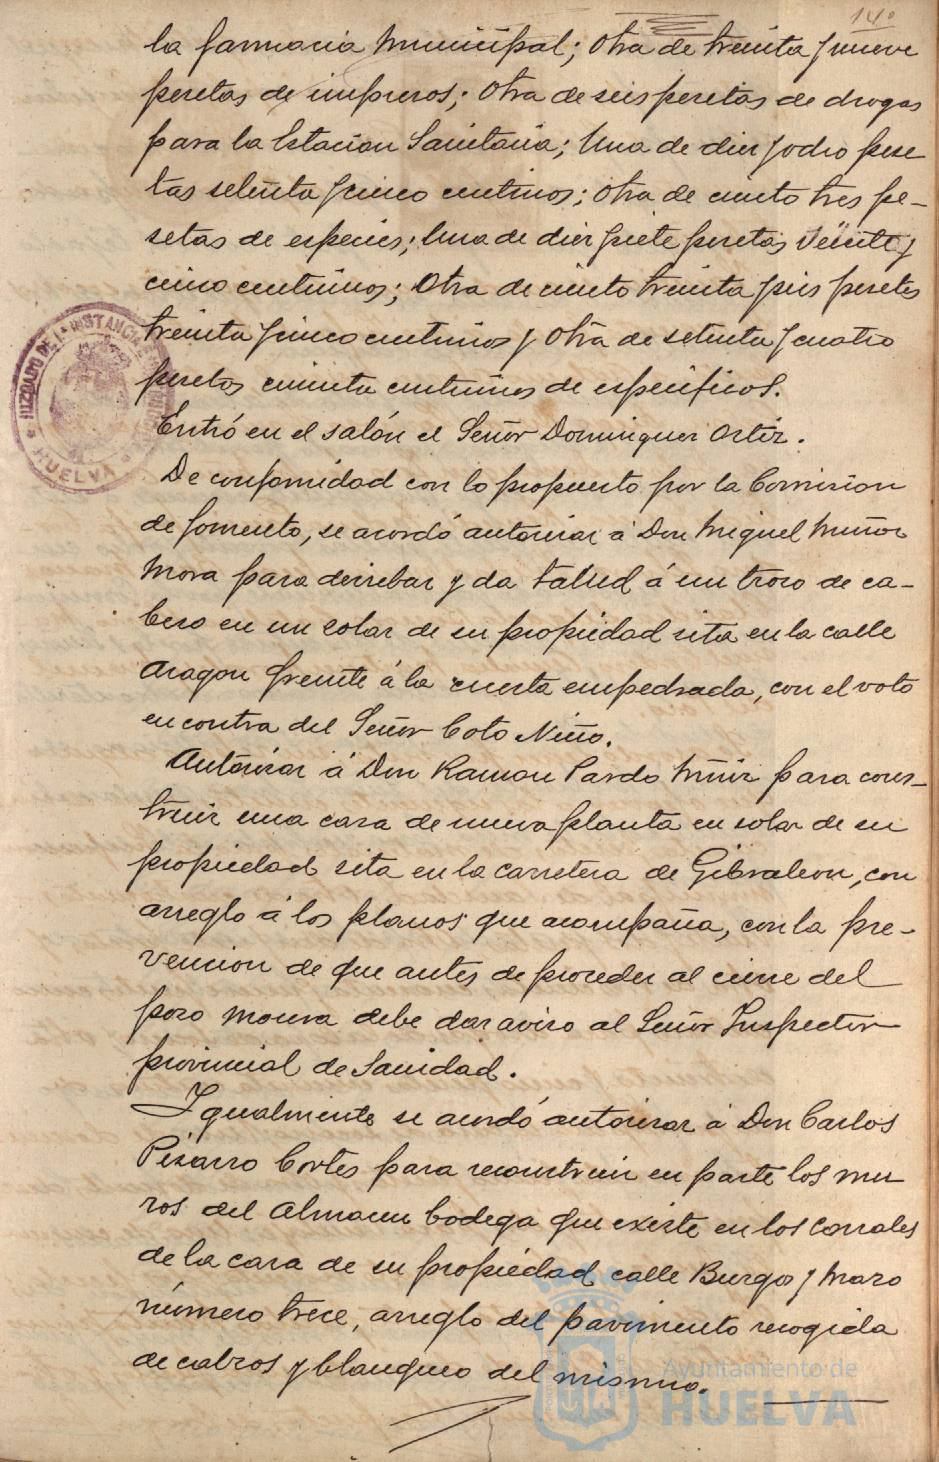 140
la farmacia Municipal; Otra de treinta y nueve
pesetas de impresos; Otra de seis pesetas de drogas
para la Estacion Sanitaria; Una de diez y ocho pese
tas setenta y cinco centimos; otra de ciento tres pe-
setas de especies; Una de diez y siete pesetas veinte y
cinco centimos; Otra de ciento treinta y seis pesetas
treinta y cinco centimos y Otra de setenta y cuatro
pesetas cincuenta centimos de especificos.
Entró en el salón el Señor Dominguez Ortiz.
De conformidad con lo propuesto por la Comision
de fomento, se acordó autorizar á Don Miguel Muñoz
Mora para derribar y da talud á un trozo de ca-
bezo en un solar de su propiedad sita en la calle
Aragon frente á la cuesta empedrada, con el voto
en contra del Señor Coto Niño.
Autorizar á Don Ramon Pardo Muñiz para cons-
truir una casa de nueva planta en solar de su
propiedad sita en la carretera de Gibraleon, con
arreglo á los planos que acompaña, con la pre-
vencion de que antes de proceder al cierre del
pozo moura debe dar aviso al Señor Inspector
provincial de Sanidad.
Igualmente se acordó autorizar á Don Carlos
Pizarro Cortes para reconstruir en parte los mu
ros del almacen bodega que existe en los corrales
de la casa de su propiedad calle Burgos y Mazo
número trece, arreglo del pavimento recogida
de cabros y blanqueo del mismo.
JUZGADO DE 1ª INSTANCIA E
HUELVA
Ayuntamiento de
HUELVA